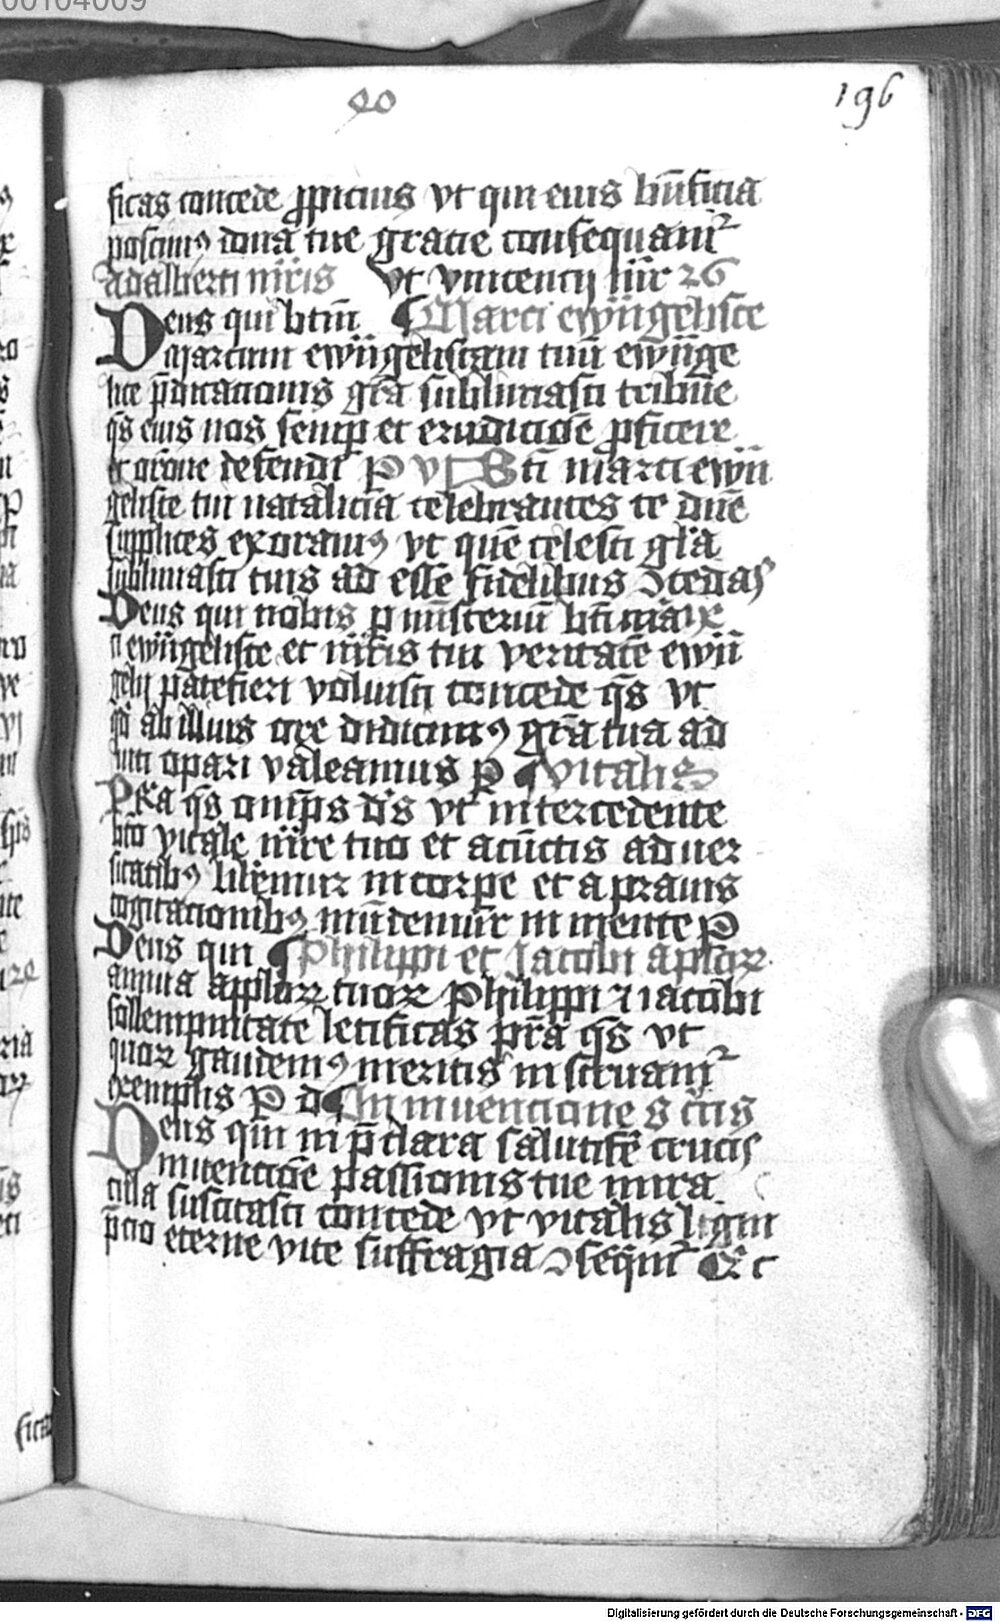 00104009
40
196
ficas concede ꝓpicius vt qui eius bn̄ficia
poscimꝰ dona tue gratie consequamr̄
adalberti mr̄is vt vincencij mr̄ 26
Deus qui btm̄ Marci ewūgeliste
marcum ewūgelistam tuū ewūge
lice p̄dicationis gr̄a sublimasti tribue
qs̄ eius nos semꝑ et erudicōe ꝓficere
et orōne defendi P vl Bti marci ewū
geliste tui natalicia celebrantes te dn̄e
supplices exoramꝰ vt quē celesti gl̄a
sublimasti tuis ad esse fidelibus ꝯcedas
Deus qui nobis ꝑ ministeriū bti mar
ci ewūgeliste et mr̄is tui veritatē ewū
gelij patefieri voluisti concede qs̄ vt
qd̄ ab illius ore didicimꝰ gr̄a tua ad
iuti oꝑari valeamus P Vitalis
Pr̄a qs̄ omīps ds̄ vt intercedente
bto vitale mr̄e tuo et a cūctis aduer
sitatibꝰ liberemur in corpe et a prauis
cogitationibꝰ mūdemur in mente P
Deus qui Philippi et Jacobi aplorꝝ
annua applorꝝ tuorꝝ Philippi ⁊ iacobi
sollempnitate letificas pr̄a qs̄ vt
quorꝝ gaudemꝰ meritis instruamr̄
exemplis P d In inuencione s cr̄cis
Deus qui in p̄clara salutifē crucis
inuencōe passionis tue mira
cula suscitasti concede vt vitalis ligni
p̄cio eterne vite suffragia ꝯseqm̄r Qr c
fica
Digitalisierung gefördert durch die Deutsche Forschungsgemeinschaft - DFG